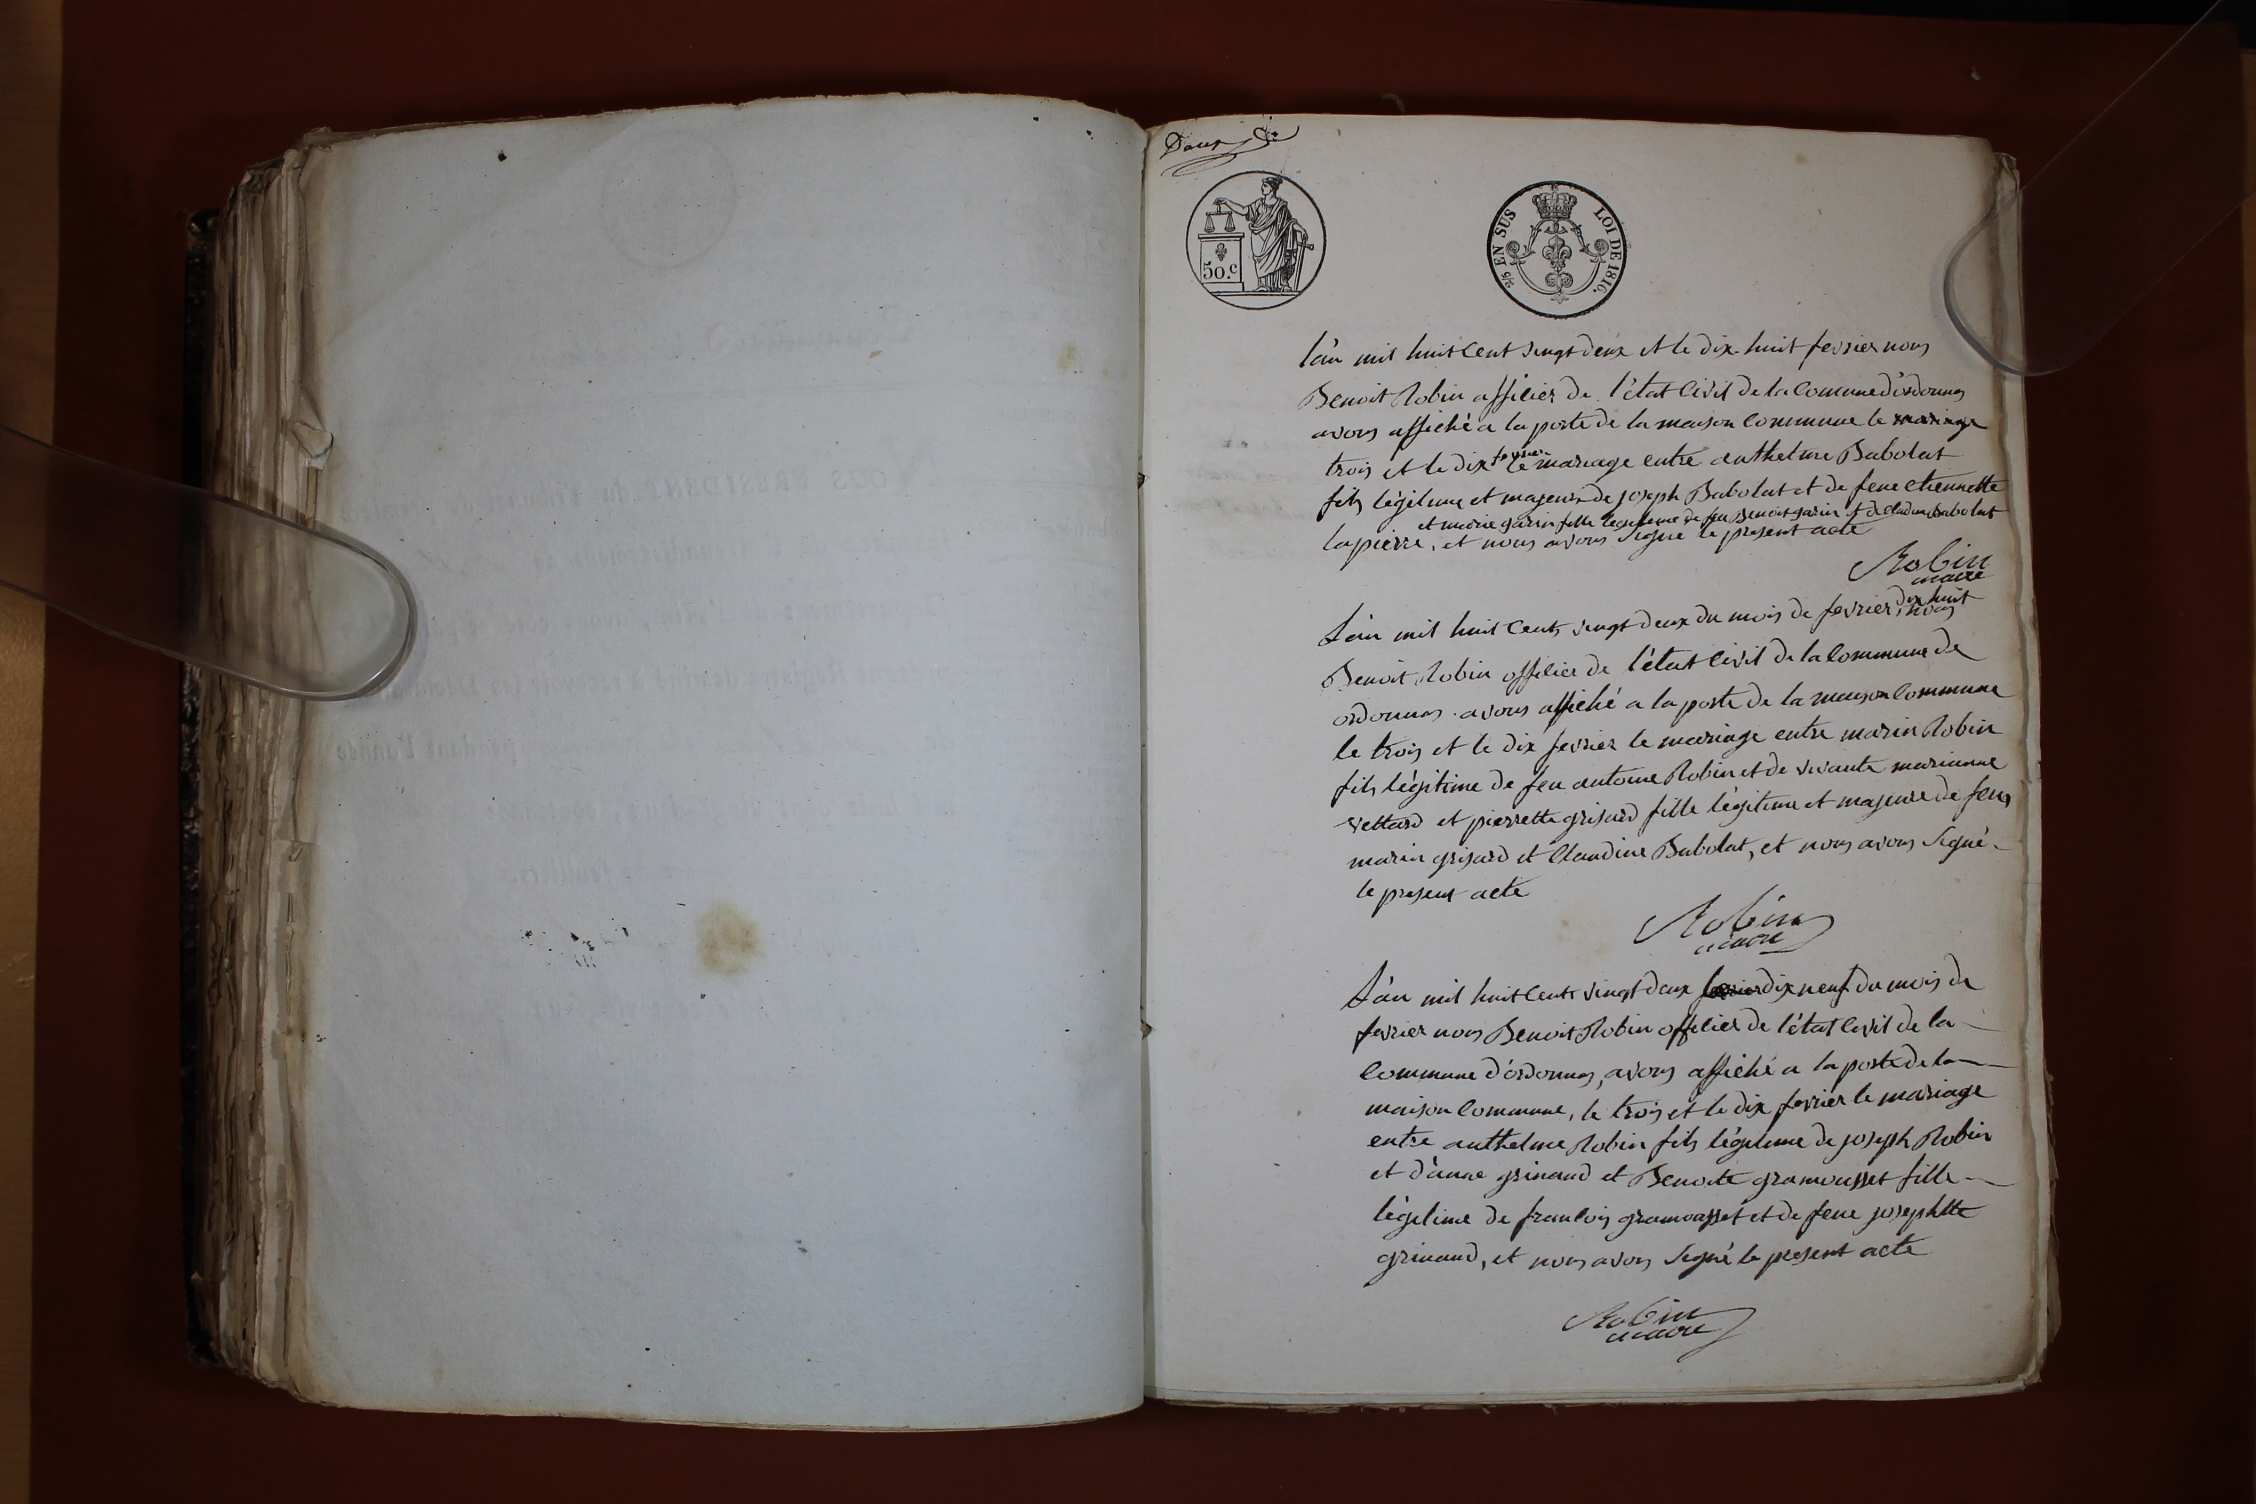 50.c
2/5 EN SUS LOI DE 1816.
l'an mil huit Cent vingt deux et le dix huit fevrier nous
Benoit Robin officier de l'état Civil de la Commune d'ordonnas
avons affiché a la porte de la maison Commune le mariage
trois et le dix fevrier le mariage entre anthelme Babolat
fils légitime et majeur de joseph Babolat et de feue etiennette
et marie garin fille legitime de feu Benoit garin et de claudine Babolat
lapierre, et nous avons Signé le present acte
Robin
maire
L'an mil huit Cents vingt deux du mois de fevrier dix huit nous
Benoit Robin officier de l'état Civil de la Commune de
ordonnas avons affiché a la porte de la maison Commune
le trois et le dix fevrier le mariage entre marin Robin
fils légitime de feu antoine Robin et de vivante marianne
vettard et pierrette grisard fille légitime et majeure de feus
marin grisard et Claudine Babolat, et nous avons Signé
le present acte
Robin
maire
L'an mil huit Cents vingt deux dix neuf du mois de
fevrier nous Benoit Robin officier de l'état Civil de la
Commune d'ordonnas, avons affiché a la porte de la
maison Commune, le trois et le dix fevrier le mariage
entre anthelme Robin fils légitime de joseph Robin
et d'anne grinand et Benoite gramousset fille
légitime de francois gramousset et de feue josephtte
grinand, et nous avons Signé le present acte
Robin
maire